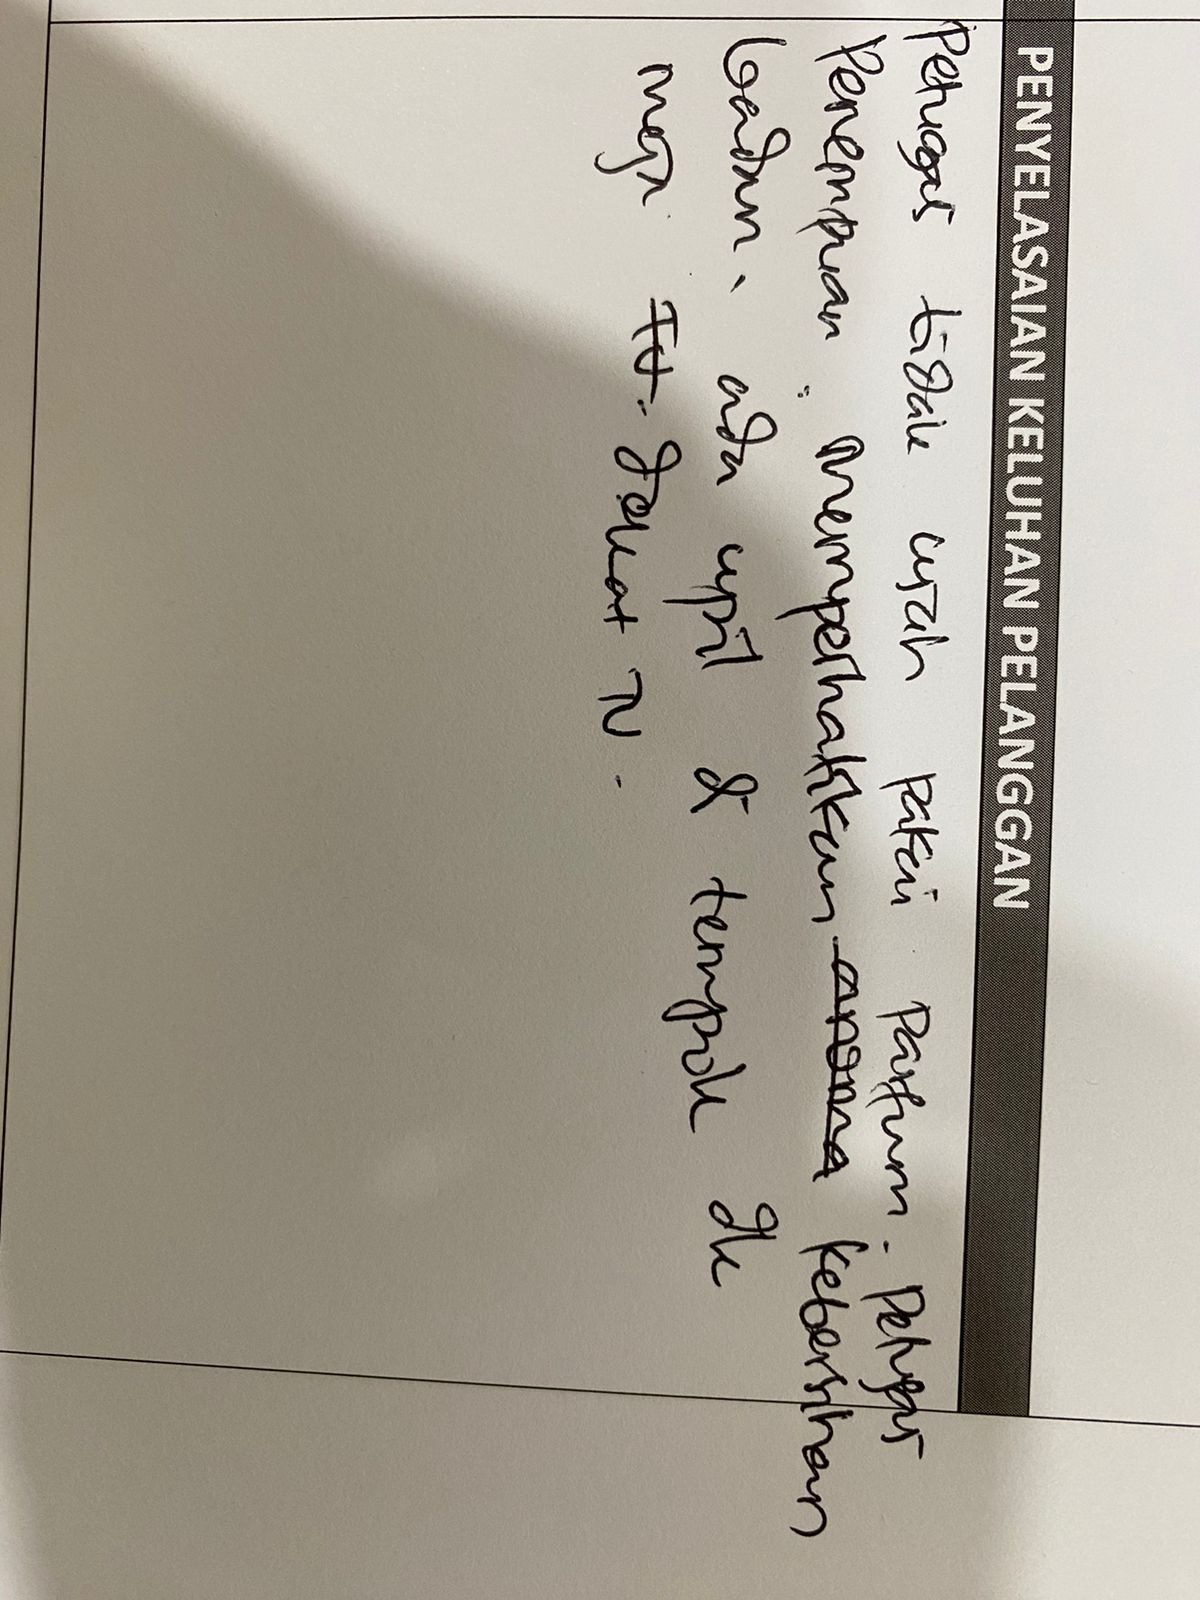 PENYELASAIAN KELUHAN PELANGGAN
Petugas tidak usah pakai Parfum. petugas
Perempuan. memperhatikan aroma kebersihan
badan. ada upil di tempok dk
meja TV. dekat TV.